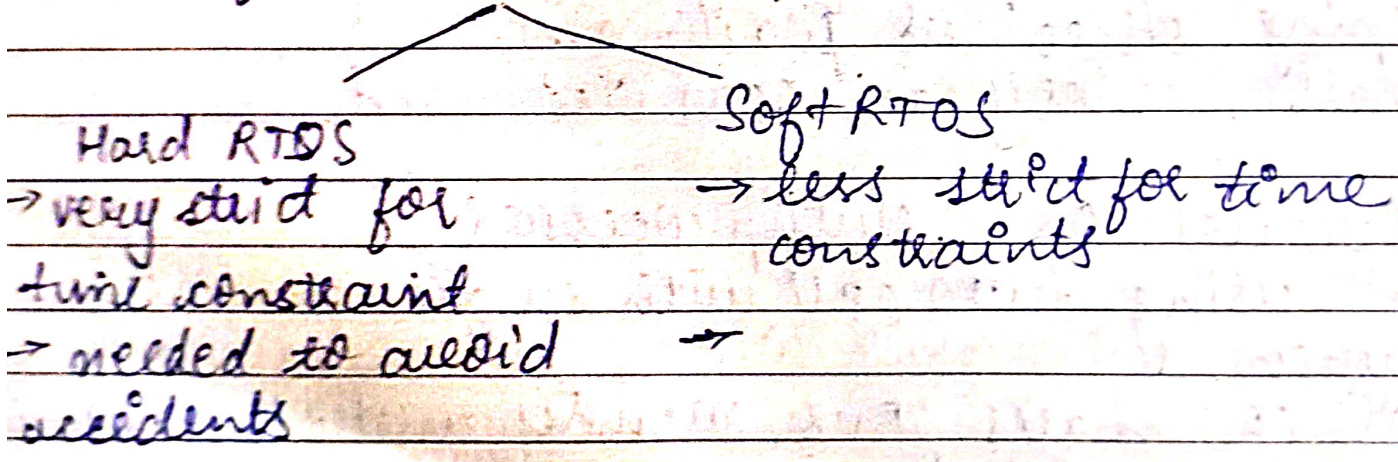 Hard RTOS
→ very strict for
time constraint
→ needed to avoid
accidents
Soft RTOS
→ less strict for time
constraints
→